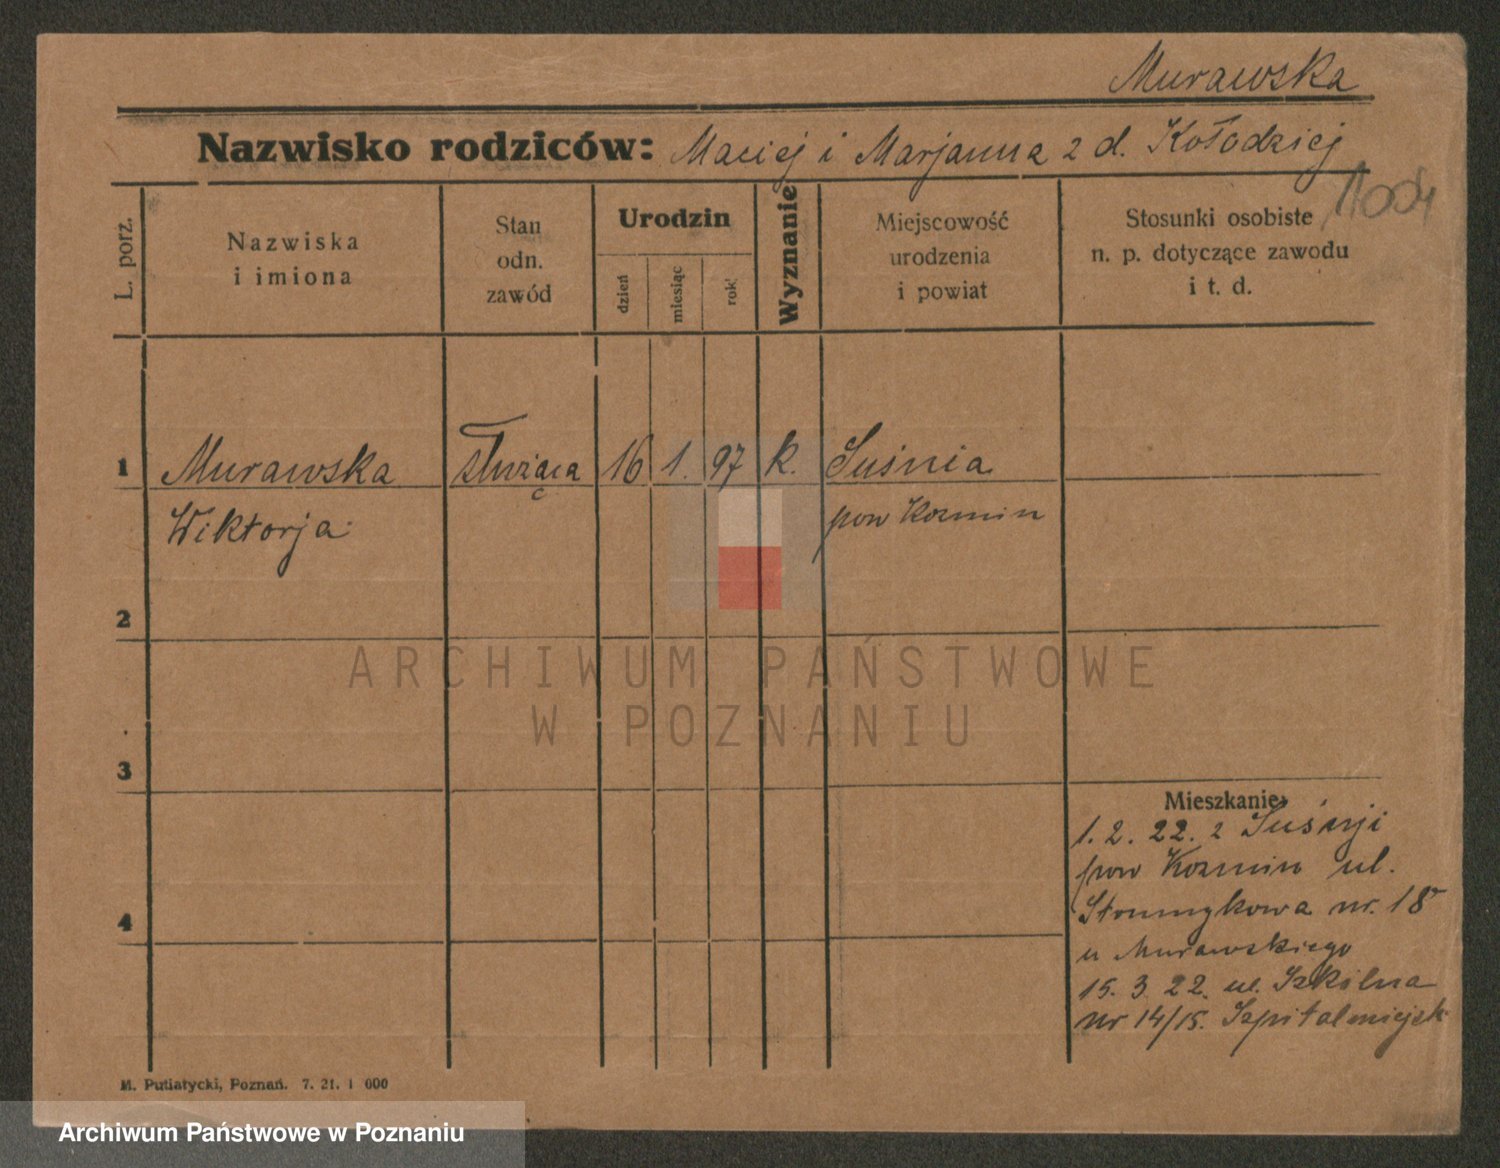 Murawska
Nazwisko rodziców: Maciej i Marjanna z d. Kołodziej
1004
L. porz.
Nazwiska
i imiona
Stan
odn.
zawód
Urodzin
dzień
miesiąc
rok
Wyznanie
Miejscowość
urodzenia
i powiat
Stosunki osobiste
n. p. dotyczące zawodu
i t. d.
1 Murawska służąca 16 1. 97 k. Suśnia
Wiktorja pow Kozmin
2
3
4
Mieszkanie
1. 2. 22. z Suśnji
pow Kozmin ul.
Strumykowa nr. 18
u Murawskiego
15. 3. 22. ul. Szkólna
nr 14/15. Szpital miejsk.
M. Putiatycki, Poznań. 7. 21. 1 000
ARCHIWUM PAŃSTWOWE
W POZNANIU
Archiwum Państwowe w Poznaniu